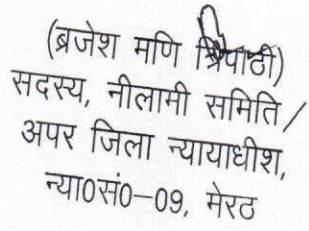 (ब्रजेश मणि त्रिपाठी)
सदस्य, नीलामी समिति /
अपर जिला न्यायाधीश,
न्या0सं0-09, मेरठ